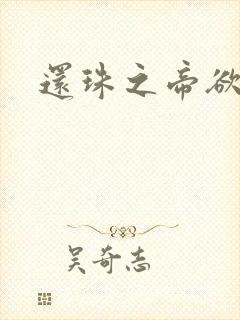 還珠之帝欲
吴奇志